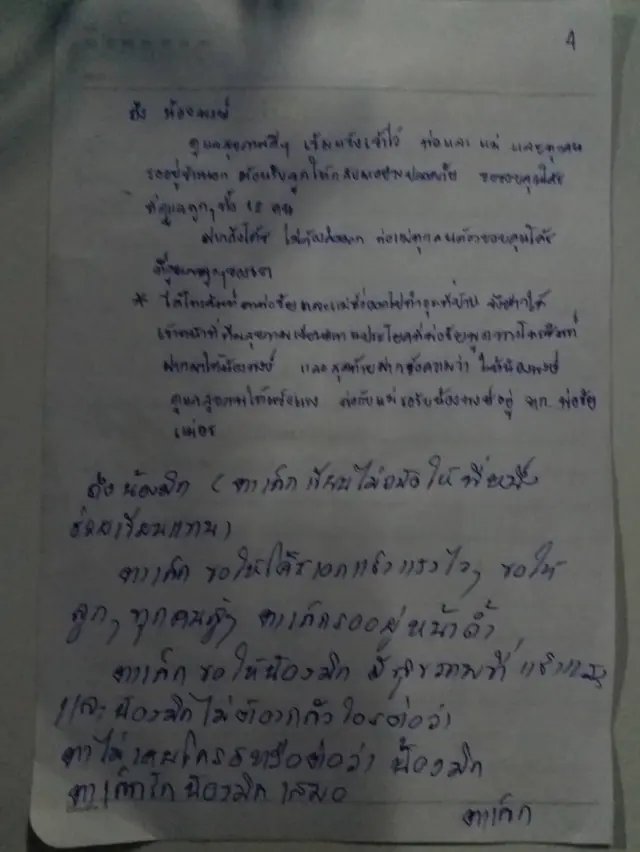 4
ถึง น้องพงษ์
ดูแลสุขภาพดีๆ เข้มแข็งเข้าไว้ พ่อและ แม่ และทุกคน
รออยู่ข้างนอก ต้อนรับลูกให้กลับมาอย่างปลอดภัย ขอขอบคุณโค้ช
ที่ดูแลลูกๆทั้ง 12 คน
ฝากถึงโค้ช ไม่ต้องคิดมาก พ่อแม่ทุกคนต้องขอบคุณโค้ช
ที่ดูแลลูกๆของเรา
* ได้โทรศัพท์หาพ่อซ้อน และแม่ซึ่งออกไปทำธุระที่บ้าน จึงฝากให้
เจ้าหน้าที่ทีมสุขภาพเขียนตามประโยคที่พ่อซ้อนพูดจากโทรศัพท์
ฝากมาให้น้องพงษ์ และสุดท้ายฝากข้อความว่า ให้น้องพงษ์
ดูแลสุขภาพให้แข็งแรง พ่อกับแม่รอรับน้องพงษ์อยู่ จาก พ่อซ้อน
แม่อร
ถึง น้องมิก ( ตาเค็ก เขียนไม่ถนัด ให้
ช่วยเขียนแทน)
ตาเค็ก ขอให้ได้ออกมาเร็วๆ ไวๆ ขอให้
ลูกๆ ทุกคนสู้ๆ ตาเค็กรออยู่หน้าถ้ำ
ตาเค็ก ขอให้น้องมิก มีสุขภาพ แข็งแรง
และ น้องมิกไม่ต้องกลัวใครต่อว่า
ตาไม่เคยโกรธหรือต่อว่า น้องมิก
ตาเค็กรัก น้องมิก เสมอ
ตาเค็ก